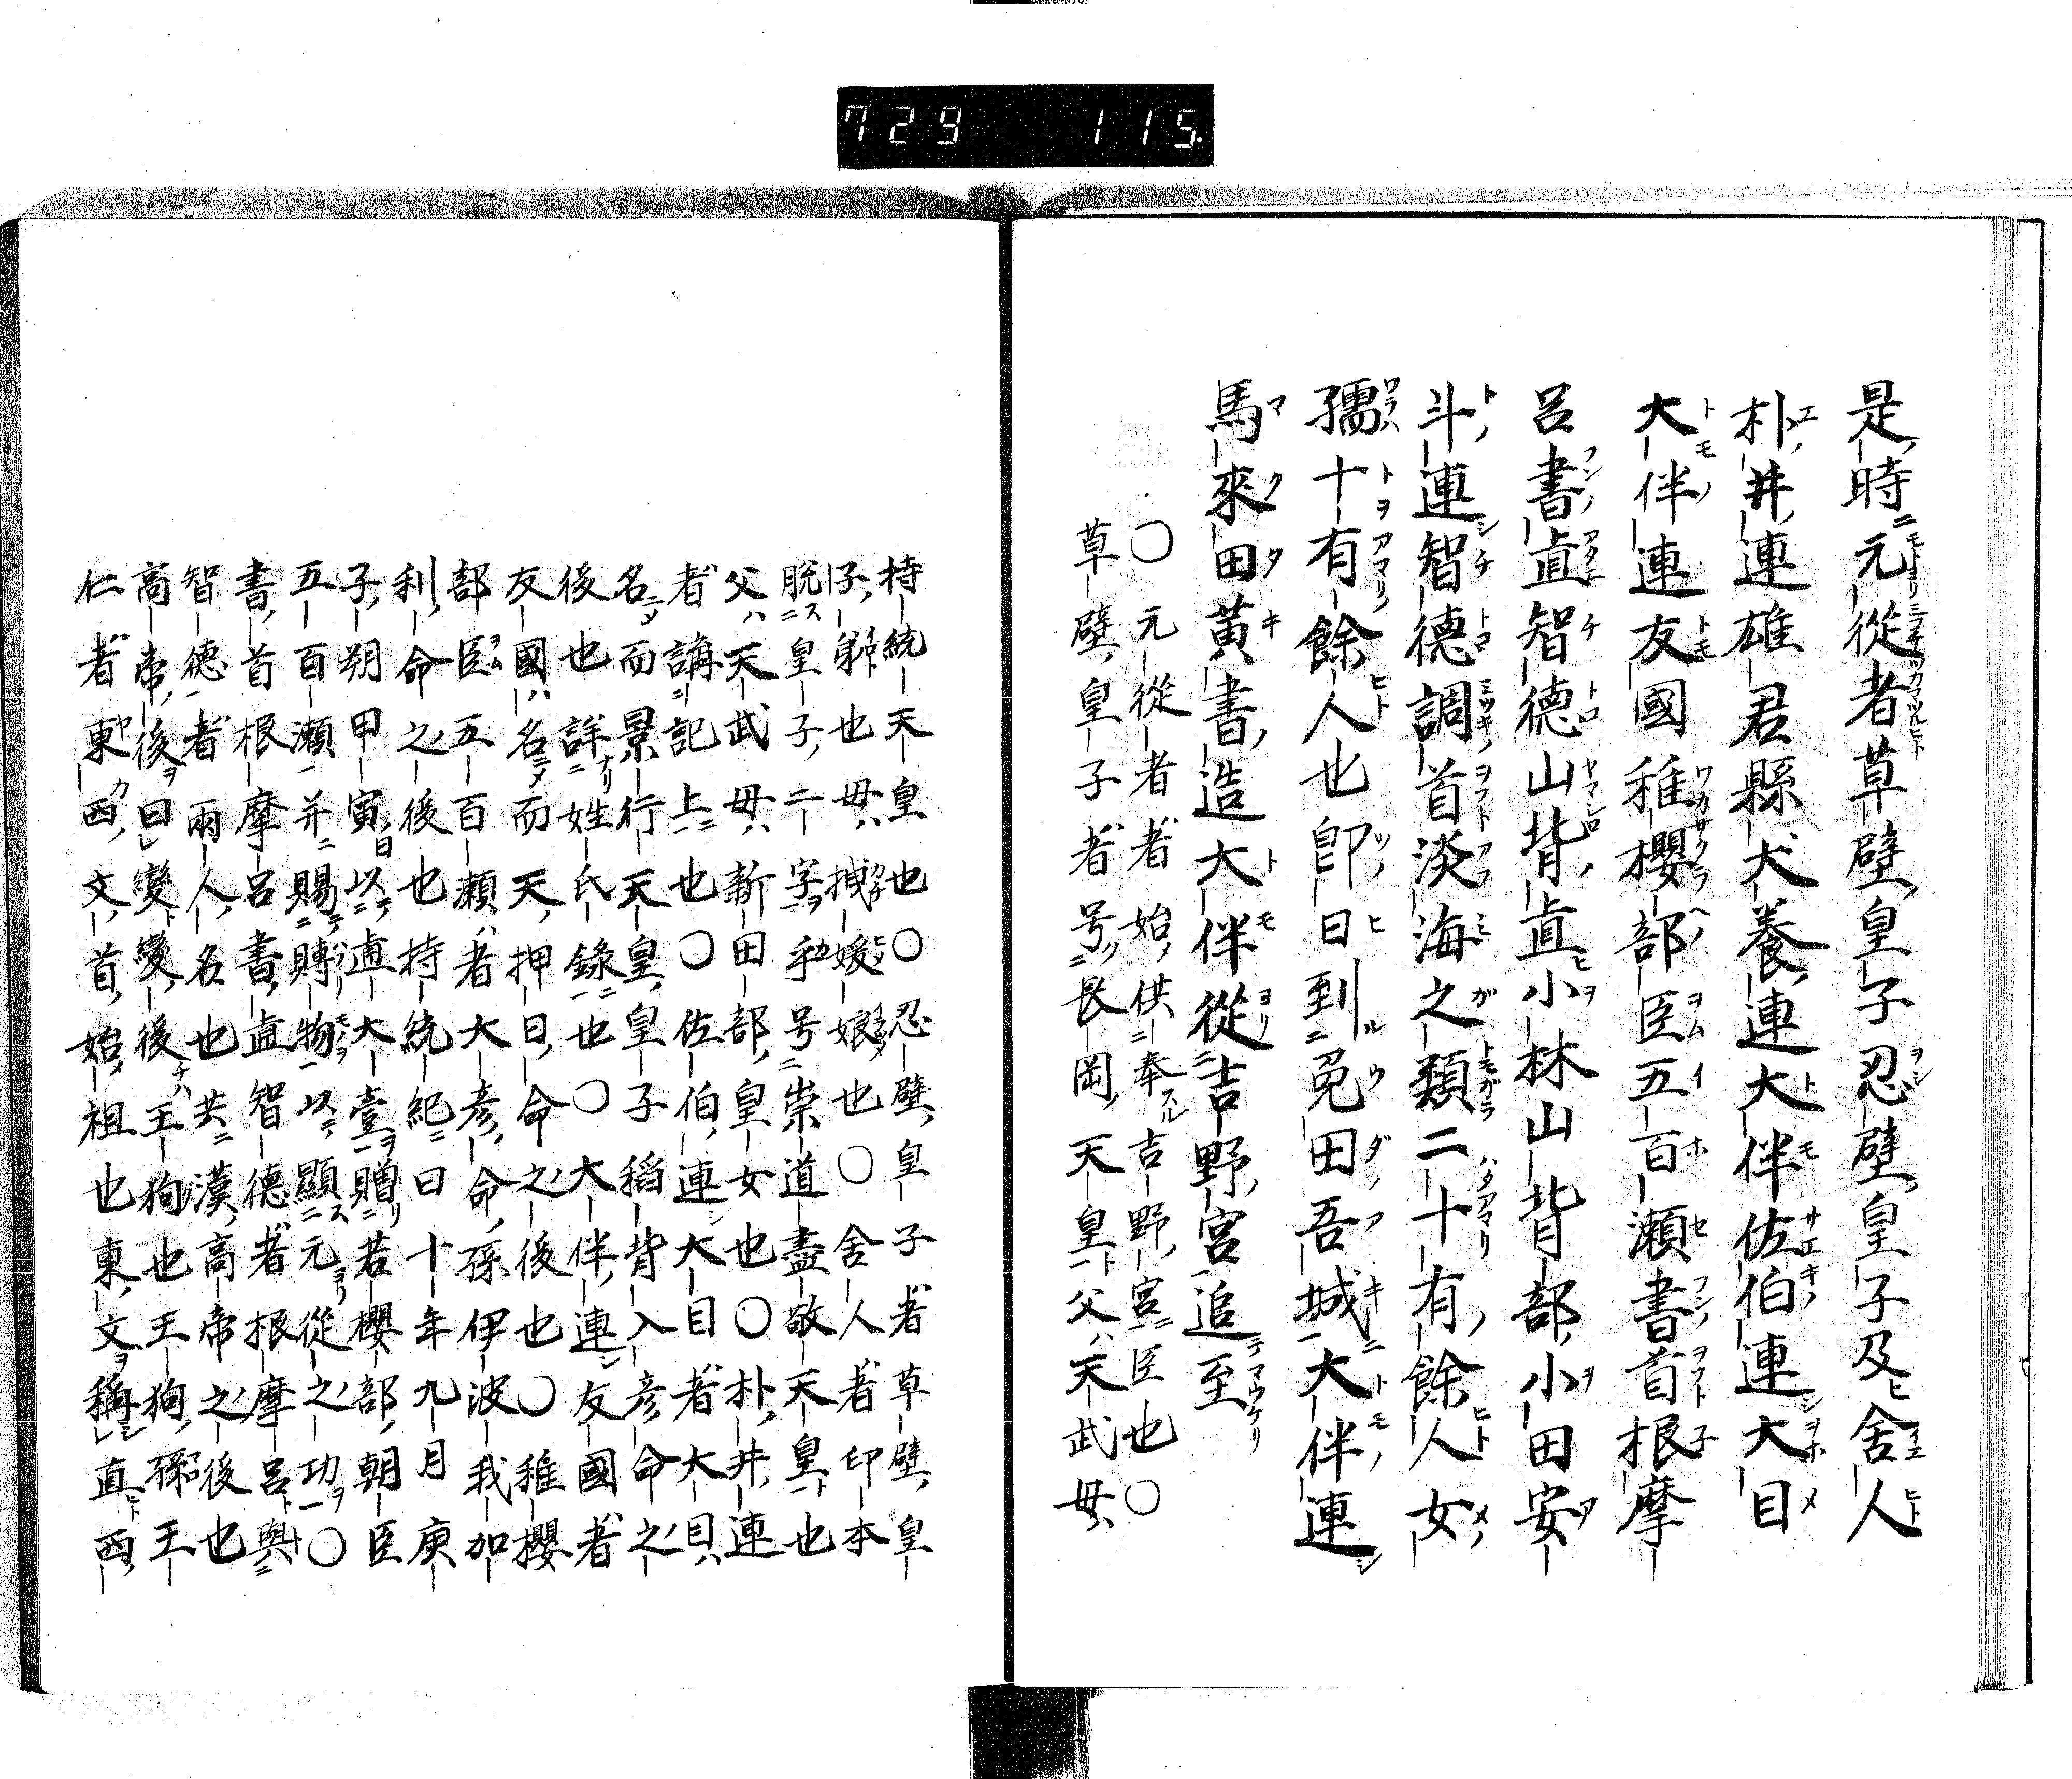 729 115.
是時元從者草壁皇子忍壁皇子及舍人
朴井連雄君縣犬養連大伴佐伯連大目
大伴連友國稚櫻部臣五百瀬書首根摩
呂書直智德山背直小林山背部小田安
斗連智德調首淡海之類二十有餘人女
孺十有餘人也卽日到菟田吾城大伴連
馬來田黃書造大伴從吉野宮追至
〇元從者者始供奉吉野宮臣也〇
草壁皇子者号長岡天皇父天武母
持統天皇也〇忍壁皇子者草壁皇
子躬也母擑媛娘也〇舍人者印本
脫皇子二字乎号崇道盡敬天皇也
父天武母新田部皇女也〇朴井連
者講記上也〇佐伯連大目者大目
名而景行天皇皇子稻背入彦命之
後也詳姓氏錄也〇大伴連友國者
友國名而天押日命之後也〇稚櫻
部臣五百瀬者大彦命孫伊波我加
利命之後也持統紀曰十年九月庚
子朔甲寅以直大壹贈若櫻部朝臣
五百瀬并賜賻物以顯元從之功〇
書首根摩呂書直智德者根摩呂與
智德者兩人名也共漢高帝之後也
高帝後曰變變後王狗也王狗孫王
仁者東西文首始祖也東文稱直西